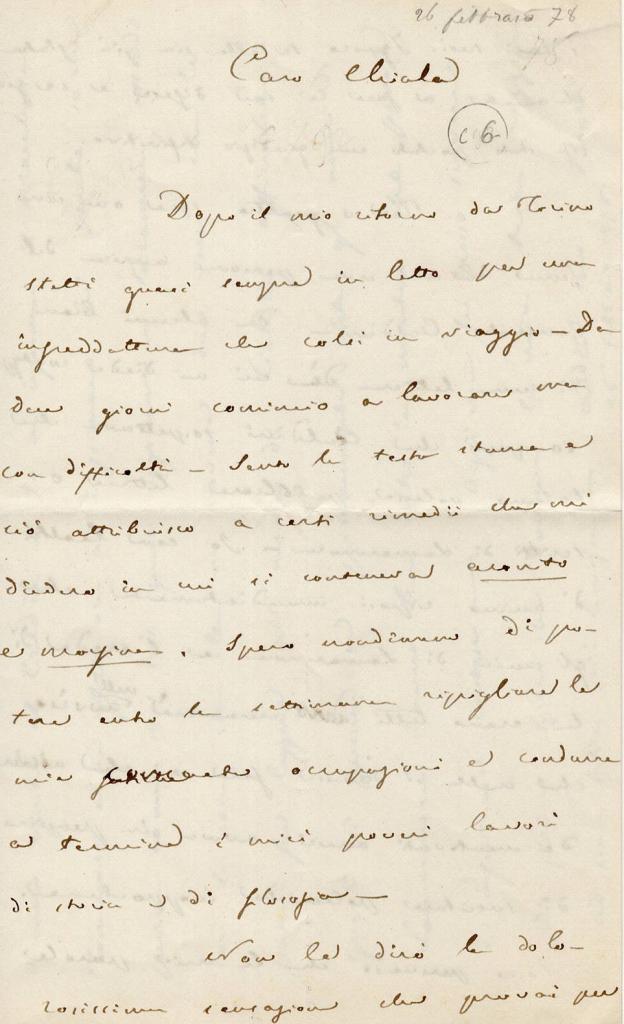 26 febbraio 78
Caro Chiala
c 6
Dopo il mio ritorno da Torino
stetti quasi sempre in letto per una
infreddattura che colsi in viaggio — Da
due giorni comincio a lavorare ma
con difficoltà — Sento la testa stanca e
ciò attribuisco a certi rimedii che mi
diedero in cui si conteneva aconito
e morfina. Spero nondimeno di po-
tere entro la settimana ripigliare le
mie occupazioni e condurre
a termine i miei poveri lavori
di storia e di filosofia —
Non le dirò la dolo-
rosissima sensazione che provai per